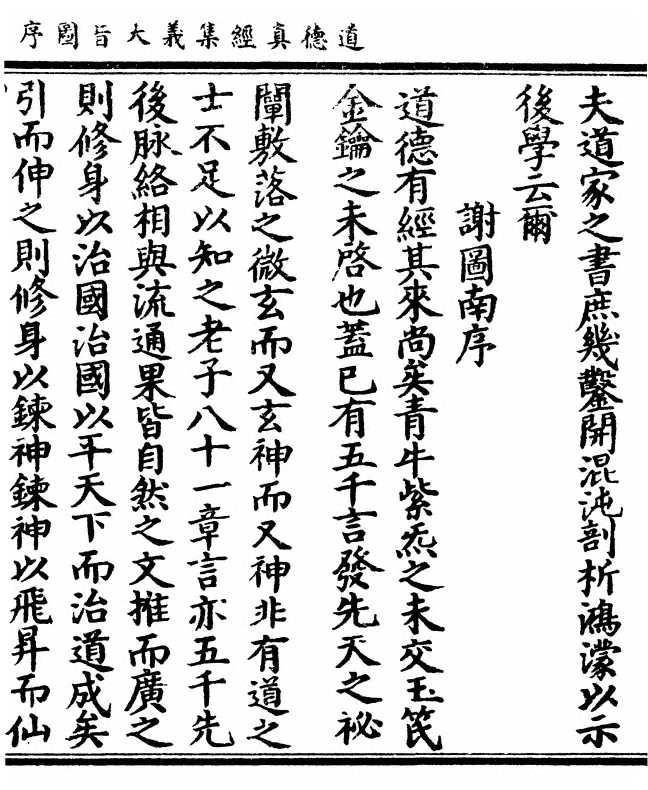 道德真經集義大旨圖序
夫道家之書庶幾鑿開混沌剖析鴻濛以示
後學云爾
謝圖南序
道德有經其來尚矣青牛紫炁之未交玉笢
金鑰之未啓也蓋已有五千言發先天之祕
闡敷落之微玄而又玄神而又神非有道之
士不足以知之老子八十一章言亦五千先
後脉絡相與流通果皆自然之文推而廣之
則修身以治國治國以平天下而治道成矣
引而伸之則修身以鍊神鍊神以飛昇而仙